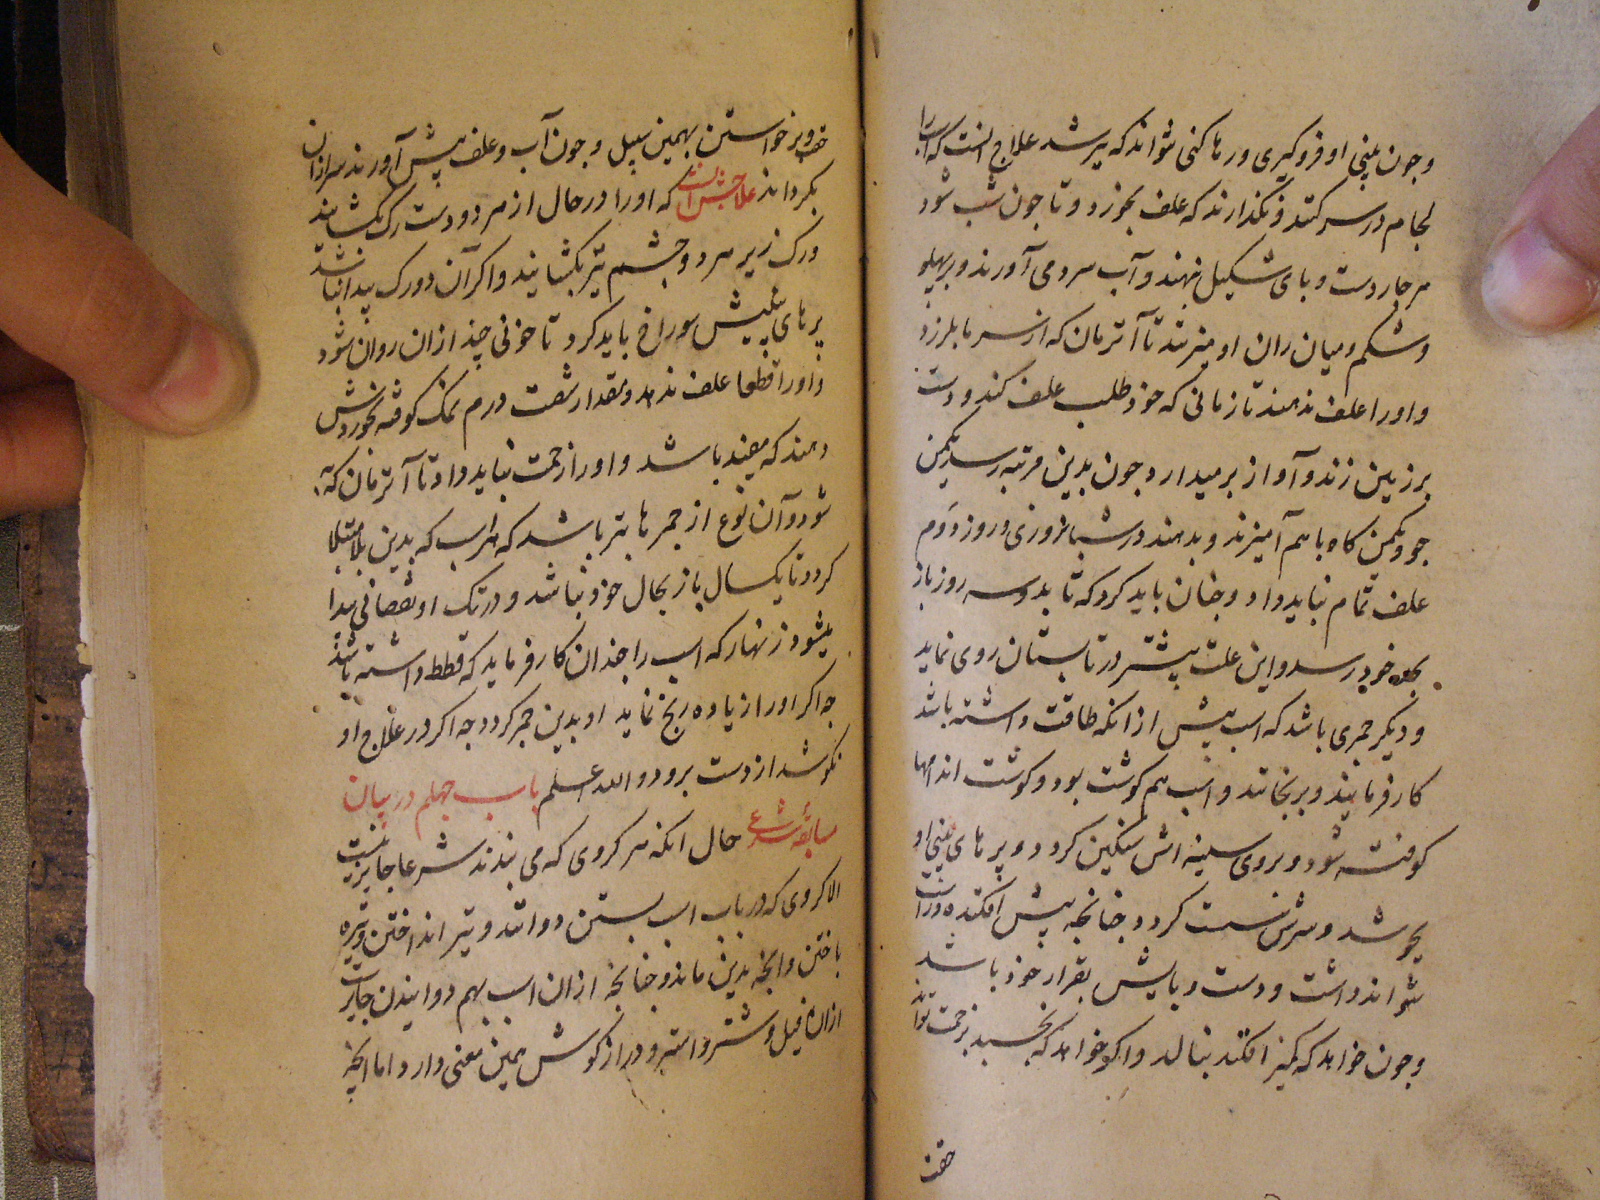 وجون بینی او فروگیری ورها کنی نتواند که پر شد علاج آنست که اورا
لجام در سر کنند و نگذارند که علف بخورد و تا جون شب شود
هر جار دست و بای شکیل نهند و آب سرد می آورند و بر پهلو
و شکم و میان ران او میزنند تا آنزمان که از سرما بلرزد
و اورا علف ندهند تا زمانی که خود طلب علف کند و دست
بر زمین زند و آواز بر میدارد جون بدین مرتبه رسد یکمن
جو و یکمن کاه باهم آمیزند و بدهند در شبانروزی و روز دوم
علف تمام نباید داد و جنان باید کرد که تا بدو سه روز باز
خود رسد و این علت بیشتر در تابستان روی نماید
و دیگر جمری باشد که اسب بیش از انکه طاقت داشته باشد
کار فرمایند و برنجانند و اسب هم گوشت بود و گوشت اندامها
کوفته شود و بروی سینه اش سنگین گردد و پر های بینی او
شد و سرش سست گردد جنانجه پیش افکنده دارد
نتواند داشت و دست و پایش بقرار خود باشد
وجون خواهد که کمیز افکند بنالد و اگر خواهد که بخسبد بزحمت تواند
خفت
خفت و برخواستن بهمین سبیل وجون آب و علف پیش آورند سر ازان
بگرداند علاجش آنست که اورا در حال از هر دو دست رگ بگشایند
ورگ زیر هر دو جشم نیز بگشایند و اگر آن دو رگ پیدا نباشد
پر های بینیش سوراخ باید کرد تا خونی چند ازان روان شود
و اورا قطعا علف ندهد و مقدار شصت درم نمک کوفته بخوردش
دهند که مفید باشد و اورا زحمت نباید داد تا آنزمان که به
شود و آن نوع از جمر ها بتر باشد که هر اسب که بدین بلا مبتلا
گردد تا یکسال باز بحال خود نباشد و در تک او نقصانی پیدا
میشود زنهار که اسب را جندان کار فرماید که قطط داشته باشد
جه اگر اورا زیاده رنج نماید او بدین جمر گردد جه اگر در علاج او
نکوشد از دست برود والله اعلم باب جهلم در بیان
مسابقه شرعی حال آنکه هر گروی که می بندند شرعا جایز نیست
الا گروی که در باب اسب بستن دوانند و تیر انداختن و نیزه
باختن و آنجه بدین ماند و جنانجه ازان اسب بهم دوانیدن جایزست
ازان فیل و شتر و استر و دراز گوش همین معنی دارد اما آنجه